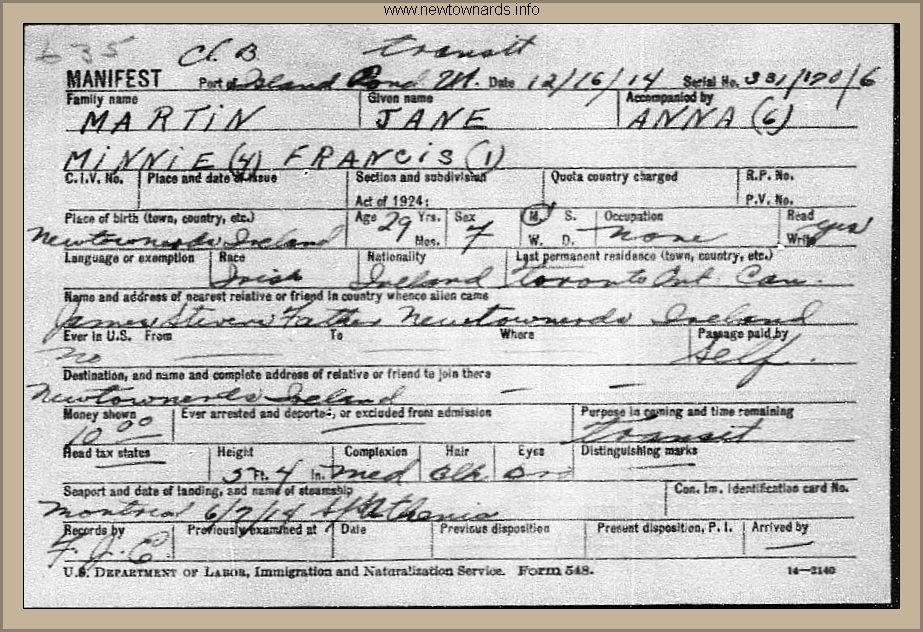 www.newtownards.info
635 Cl. B transit
MANIFEST Port of Island Pond Vt. Date 12/16/14 Serial No. 331/170/6
Family name Given name Accompanied by
MARTIN JANE ANNA (6)
MINNIE (4) FRANCIS (1)
C.I.V. No. Place and date of issue Section and subdivision Quota country charged R.P. No.
Act of 1924: P.V. No.
Place of birth (town, country, etc.) Age 29 Yrs. Sex M. S. Occupation Read yes
Newtownerds Ireland Mos. f W. D. none Write
Language or exemption Race Nationality Last permanent residence (town, country, etc.)
Irish Ireland Toronto Ont Can.
Name and address of nearest relative or friend in country whence alien came
James Steven Father Newtownerds Ireland
Ever in U.S. From To Where Passage paid by
No Self.
Destination, and name and complete address of relative or friend to join there
Newtownerds Ireland
Money shown Ever arrested and deported, or excluded from admission Purpose in coming and time remaining
10.00 transit
Head tax status Height Complexion Hair Eyes Distinguishing marks
5 Ft. 4 In. Med Blk Bro
Seaport and date of landing, and name of steamship Con. Im. Identification card No.
Montreal 6/7/14 SS Athenia
Records by Previously examined at Date Previous disposition Present disposition, P. I. Arrived by
F. J. E.
U.S. DEPARTMENT OF LABOR, Immigration and Naturalization Service. Form 548. 14—3140